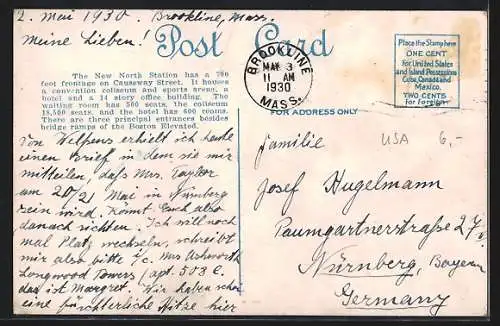 2. Mai 1930. Brookline, Mass.
Meine Lieben!
Post Card
The New North Station has a 780
foot frontage on Causeway Street. It houses
a convention coliseum and sports arena, a
hotel and a 14 story office building. The
waiting room has 500 seats, the coliseum
18,500 seats, and the hotel has 600 rooms.
There are three principal entrances besides
bridge ramps of the Boston Elevated.
Von Welfens erhielt ich heute
einen Brief in dem sie mir
mitteilen, dass Mrs. Taylor
am 20/21 Mai in Nürnberg
sein wird. Könnt Euch also
danach richten. Ich will noch
mal Platz wechseln, schreibt
mir also bitte c/o Mrs Ashworth
Longwood Towers / apt. 508 C.
das ist Margret. Wir haben schon
eine fürchterliche Hitze hier
BROOKLINE
MAY 3
11 AM
1930
MASS.
Place the Stamp here
ONE CENT
for United States
and Island Possessions
Cuba, Canada and
Mexico.
TWO CENTS
for Foreign
FOR ADDRESS ONLY
USA 6,-
Familie
Josef Hugelmann
Paumgartnerstraße 27
Nürnberg, Bayern
Germany